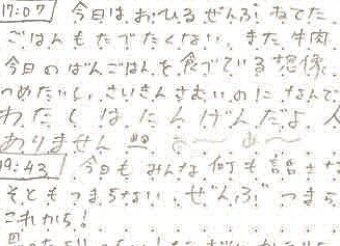 17:07 今日は、おひるぜんぶ、ねてた
ごはんもたべたくない。また牛肉
今日のばんごはんを食べている想像
つめたいし、さいきんさむいのになんで
わたしはにんげんだよ 人
ありません
19:43 今日もみんな何も話さな
そともつまらない。ぜんぶつまら
これから!